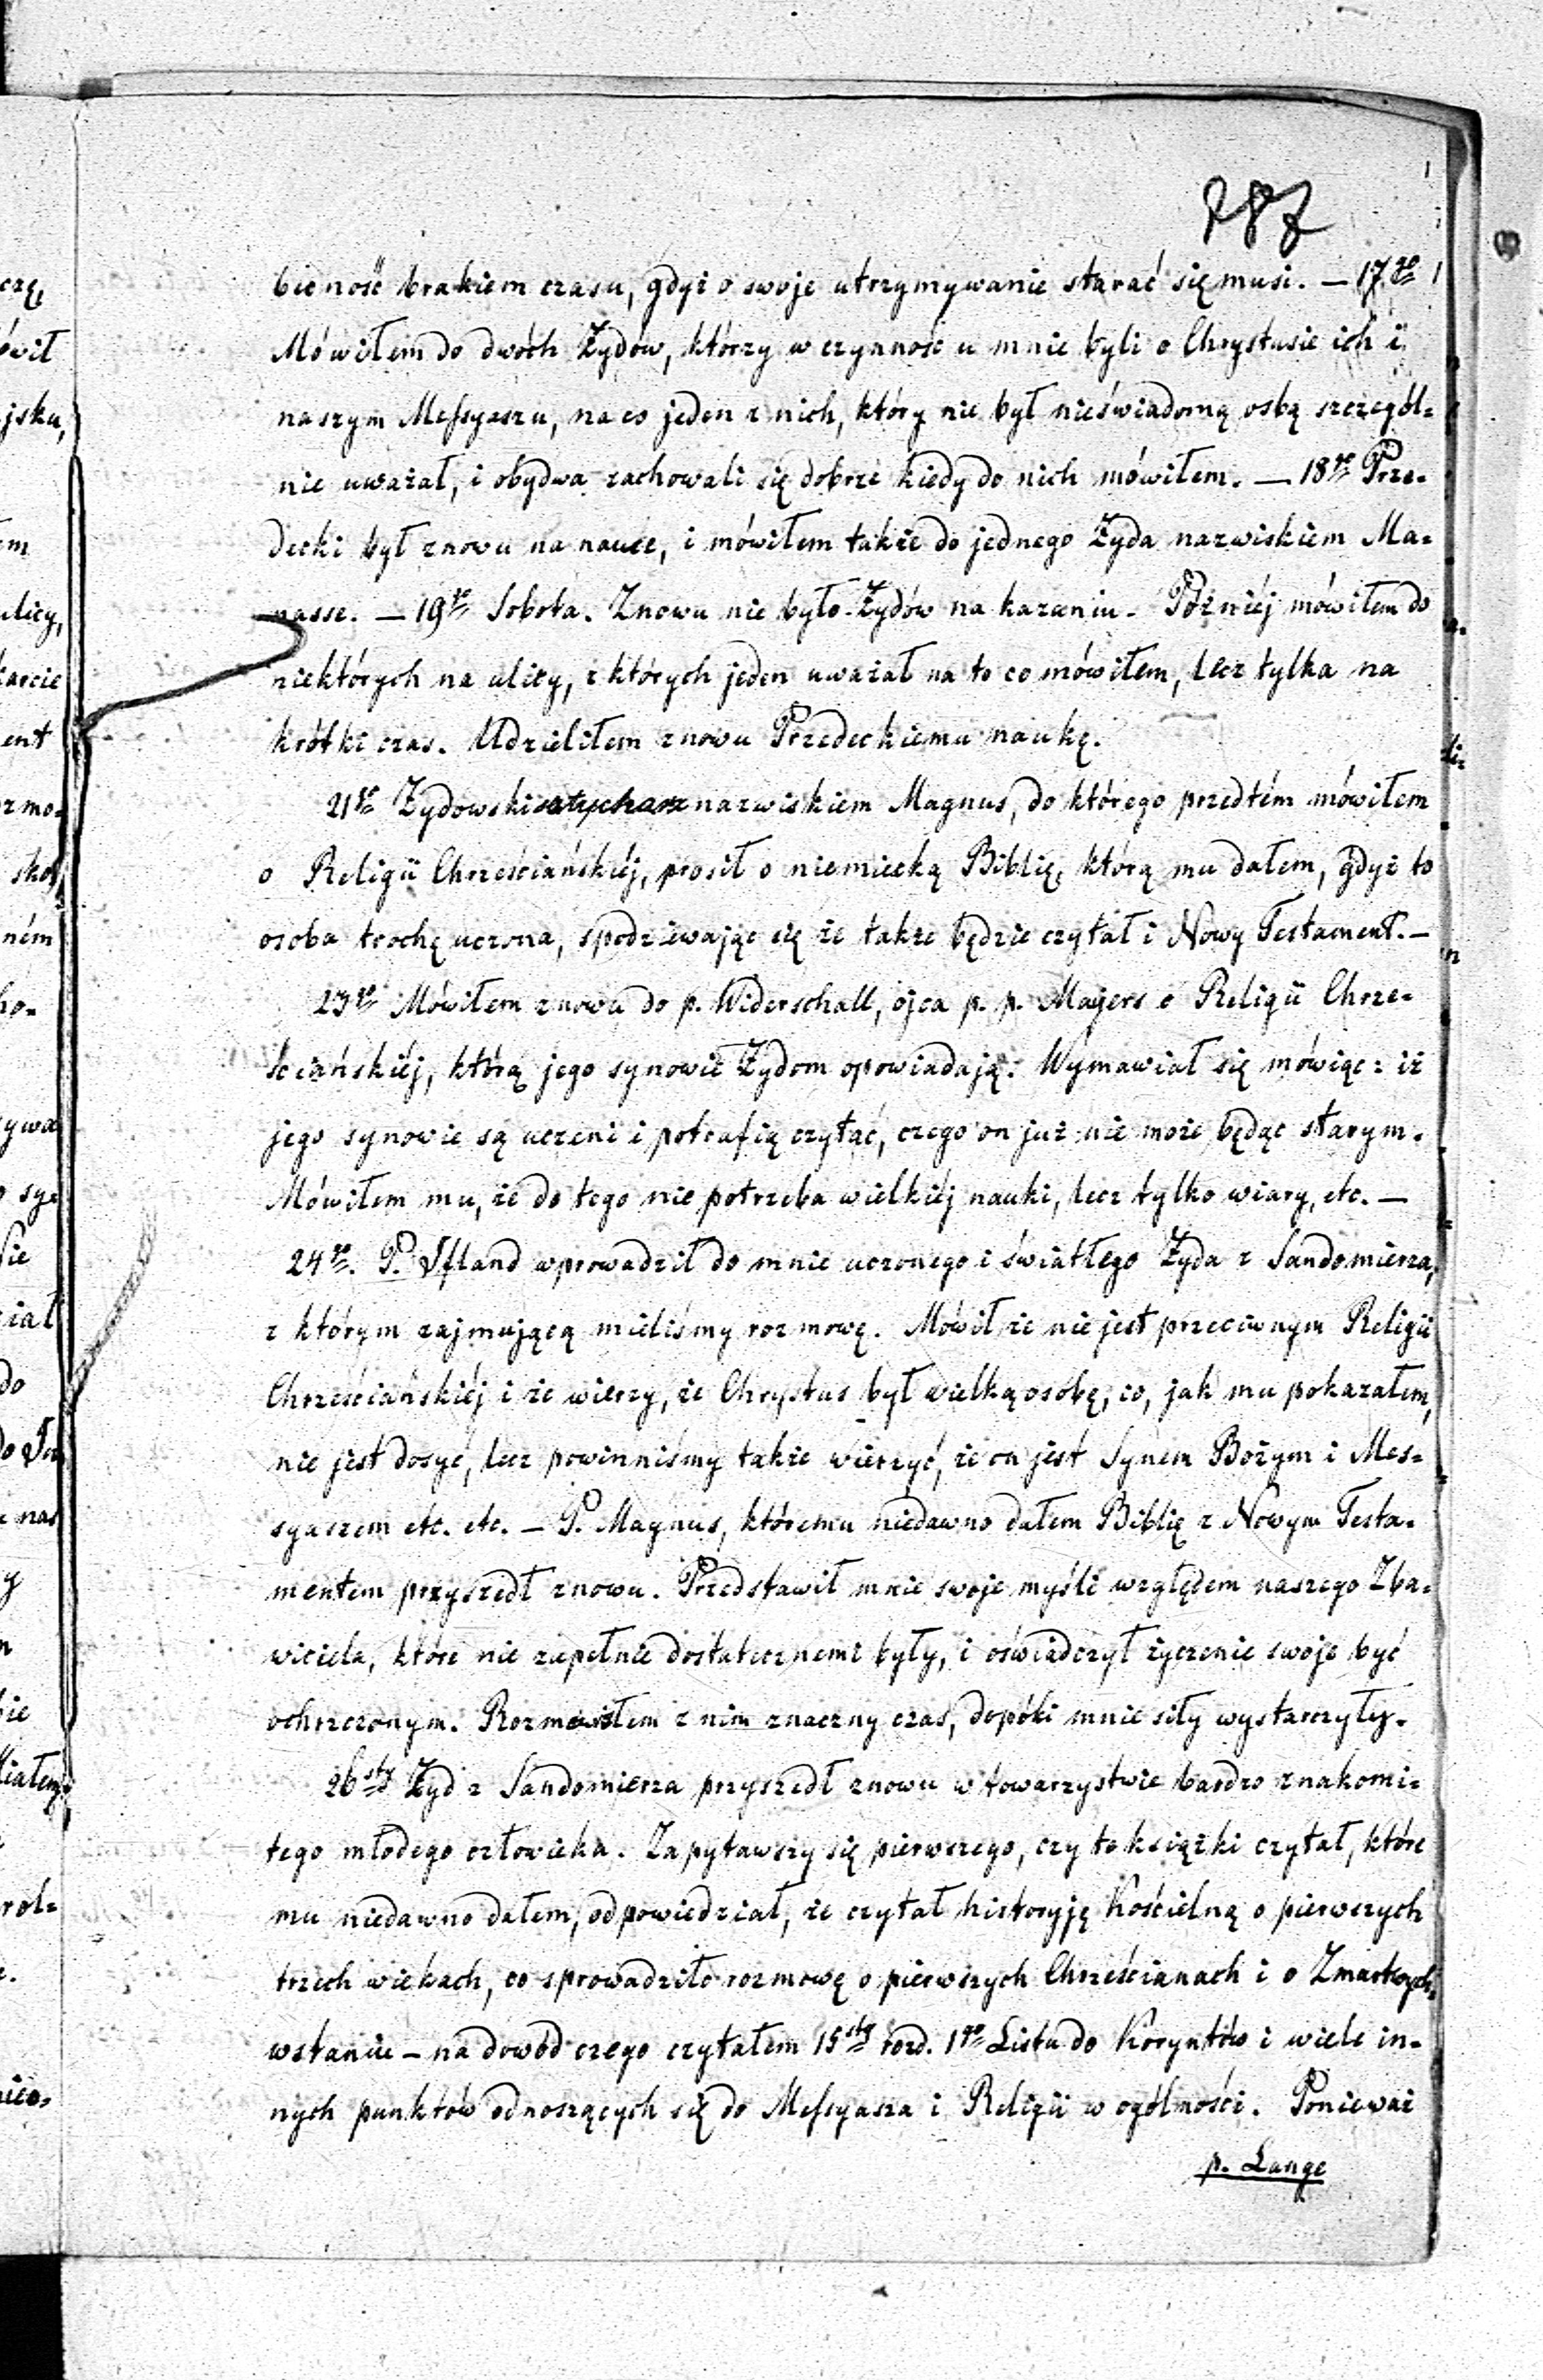 287
bieność brakiem czasu, gdyż o swoje utrzymywanie starać się musi. — 17go
Mówiłem do dwóch Żydów, którzy w czynność u mnie byli o Chrystusie ich i
naszym Messyaszu, na co jeden z nich, który nie był nieświadomą osbą szczegól=
nie uważał, i obydwa zachowali się dobrze kiedy do nich mówiłem. — 18go Prze=
decki był znowu na nauce, i mówiłem także do jednego Żyda nazwiskiem Ma=
nasse. — 19go Sobota. Znowu nie było Żydów na kazaniu. Późniéj mówiłem do
niektórych na ulicy, z których jeden uważał na to co mówiłem, lecz tylka na
krótki czas. Udzieliłem znowu Przedeckiemu naukę.
21go Żydowski sztycharz nazwiskiem Magnus, do którego przedtém mówiłem
o Religii Chrześciańskiéj, prosił o niemiecką Biblię, którą mu dałem, gdyż to
osoba trochę uczona, spodziewając się że także będzie czytał i Nowy Testament. —
23go Mówiłem znowu do p. Widerschall, ojca p. p. Mayers o Religii Chrze=
ściańskiéj, którą jego synowie Żydom opowiadają. Wymawiał się mówiąc: iż
jego synowie są uczeni i potrafią czytać, czego on już nie może będąc starym.
Mówiłem mu, że do tego nie potrzeba wielkiéj nauki, lecz tylko wiary, etc. —
24go. P. Ifland wprowadził do mnie uczonego i światłego Żyda z Sandomierza,
z którym zajmującą mieliśmy rozmowę. Mówił że nie jest przeciwnym Religii
Chrześciańskiéj i że wierzy, że Chrystus był wielką osobę, co, jak mu pokazałem,
nie jest dosyć, lecz powinniśmy także wierzyć, że on jest Synem Bożym i Mes=
syaszem etc. etc. — P. Magnus, któremu niedawno dałem Biblię z Nowym Testa=
mentem przyszedł znowu. Przedstawił mnie swoje myśli względem naszego Zba=
wiciela, które nie zupełnie dostatecznemi były, i oświadczył życzenie swoje być
ochrzczonym. Rozmawiałem z nim znaczny czas, dopóki mnie siły wystarczyły.
26sty Żyd z Sandomierza przyszedł znowu w towarzystwie bardzo znakomi=
tego młodego człowieka. Zapytawszy się pierwszego, czy te książki czytał, które
mu niedawno dałem, odpowiedział, że czytał historyję Kościelną o pierwszych
trzech wiekach, co sprowadziło rozmowę o pierwszych Chrześcianach i o Zmartwych=
wstaniu — na dowód czego czytałem 15sty rozd. 1go Listu do Koryntów i wiele in=
nych punktów odnoszących się do Messyasza i Religii w ogólności. Ponieważ
p. Lange